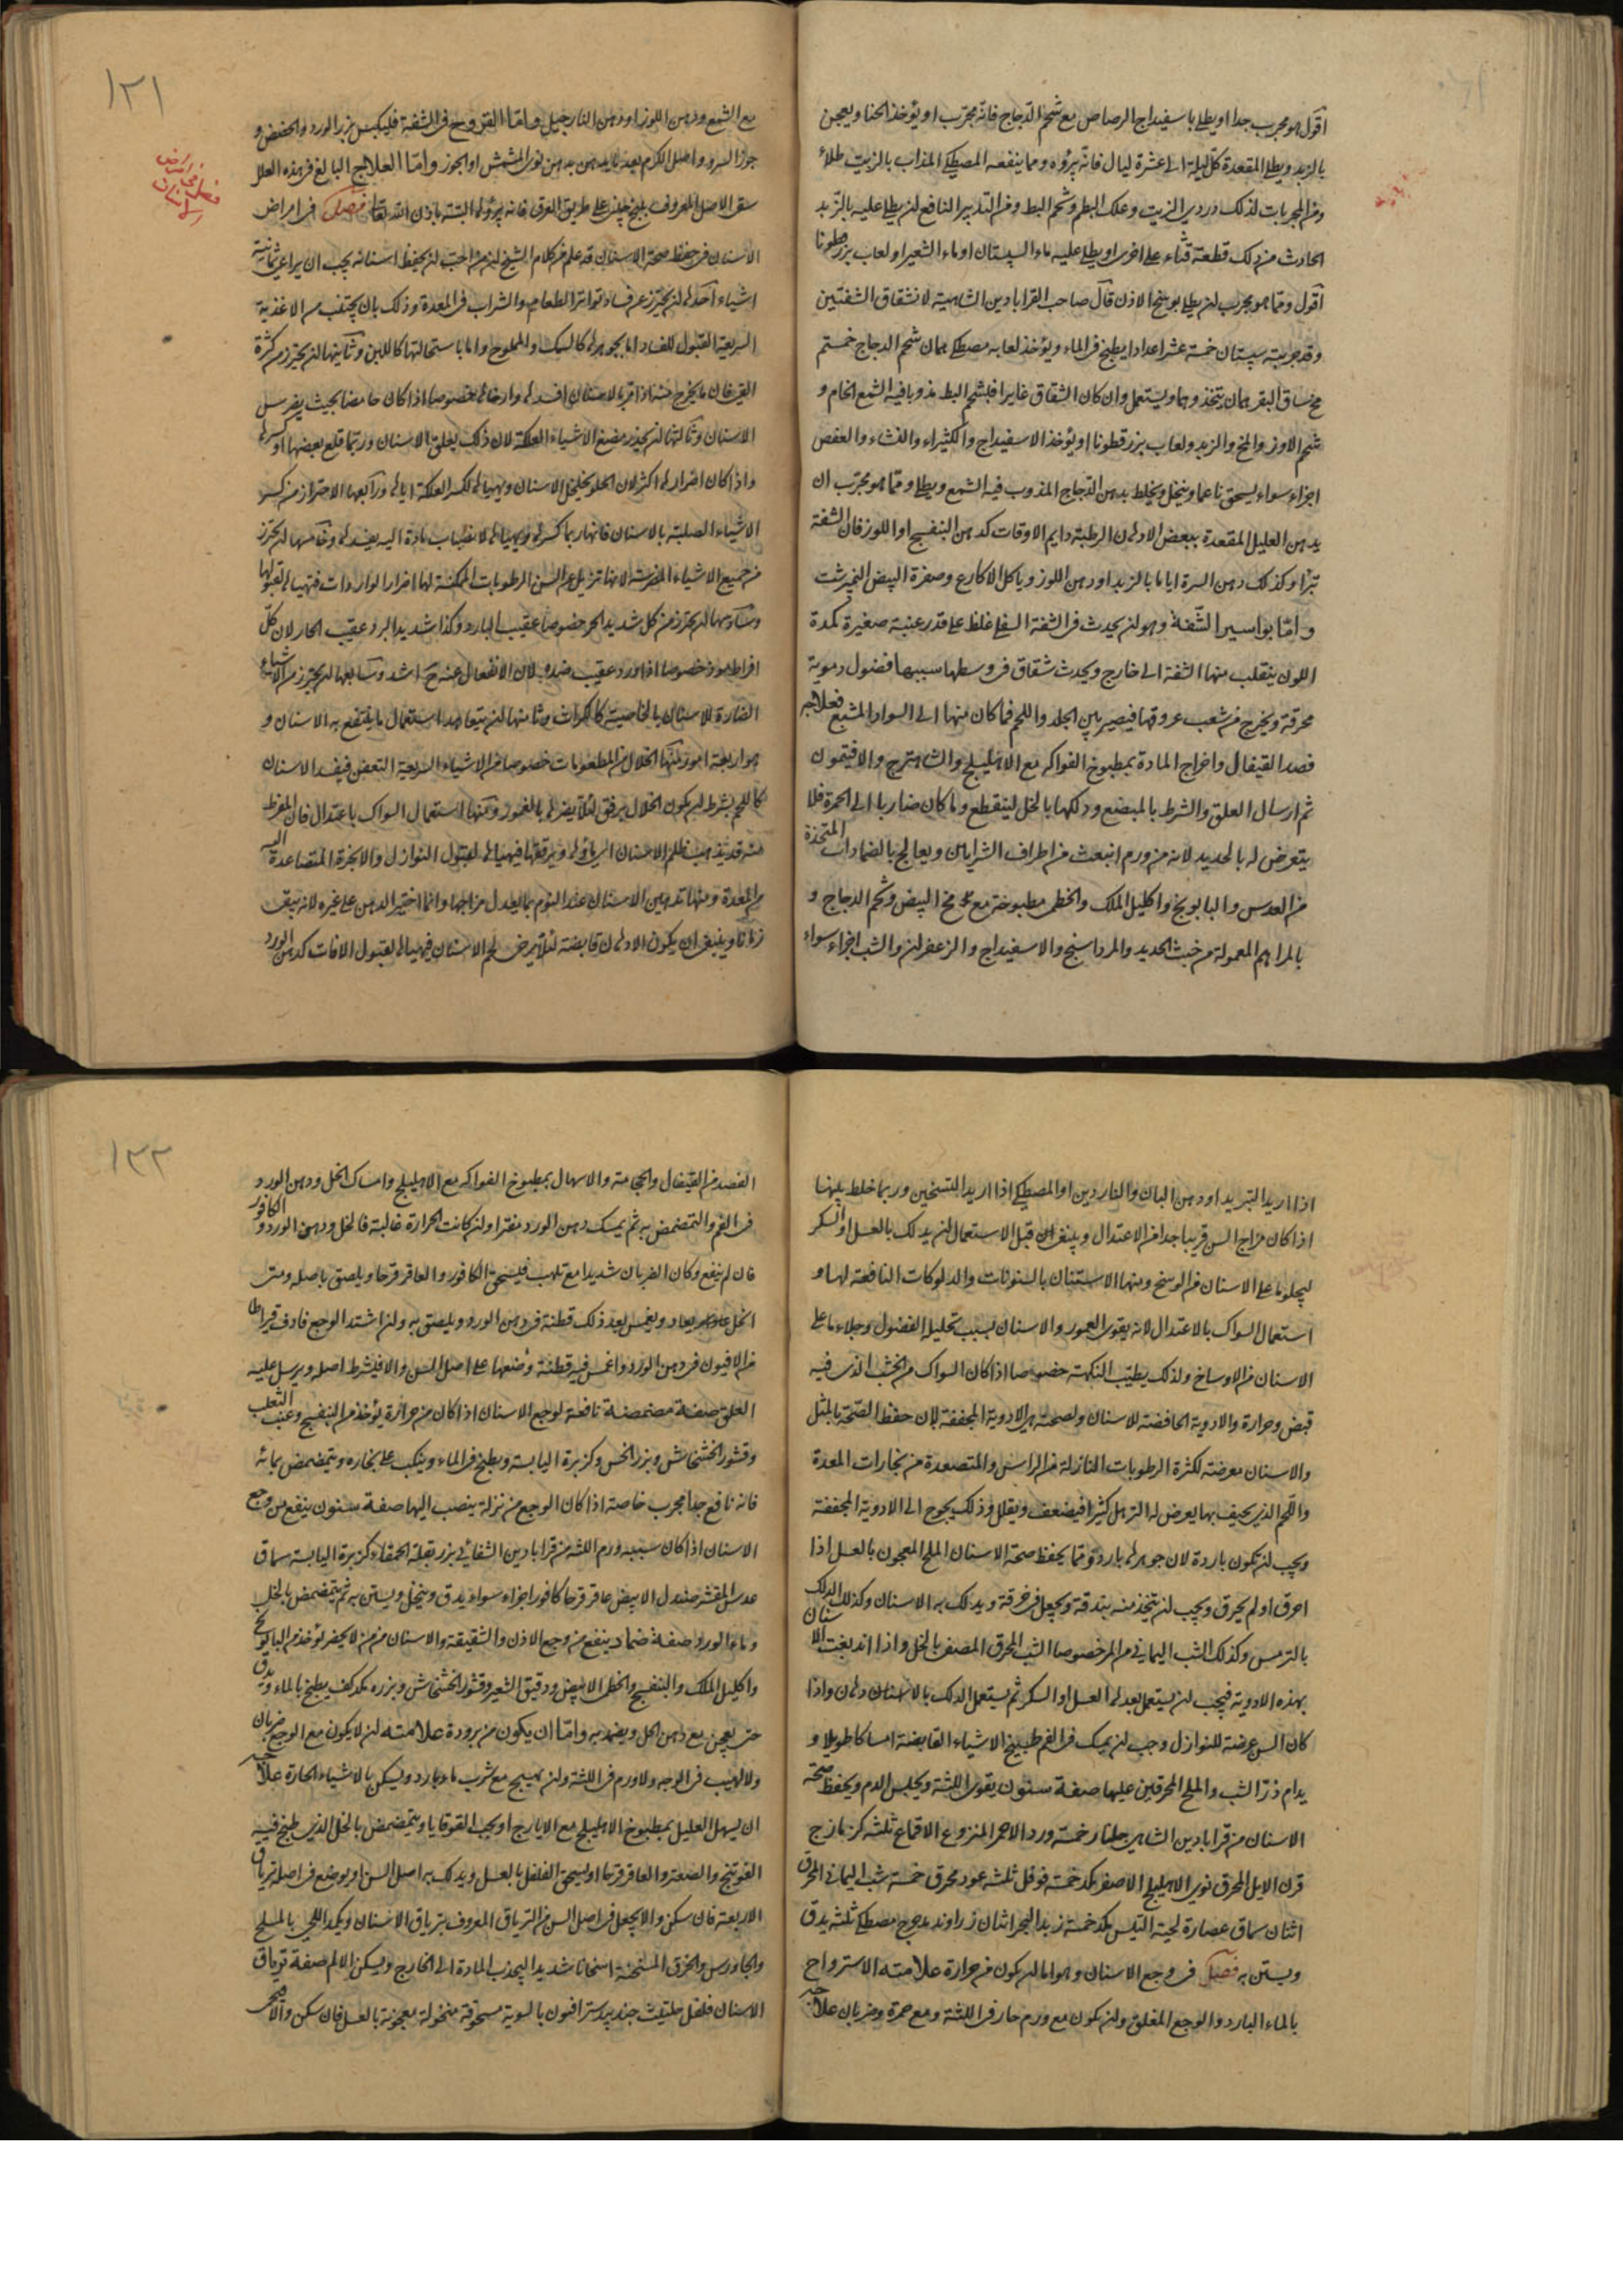 اقول هو مجرب جدا او يطلى باسفيداج الرصاص مع شحم الدجاج فانه مجرب او يؤخذ الحنا ويعجن
بالزبد ويطلى المقعدة كل ليلة الى عشرة ليال فانه برؤه ومما ينفعه المصطكى المذاب بالزيت طلاء
ومن المجربات لذلك دردي الزيت وعلك البطم وشحم البط ومن التدبير النافع ان يطلى عليه بالزبد
الحادث من دلك قطعة قثاء على اخرى او يطلى عليه ماء السپستان او ماء الشعير او لعاب بزرقطونا
اقول ومما هو مجرب ان يطلى بوسخ الاذن قال صاحب القرابادين الشاهية لانشقاق الشفتين
وقد جربته سپستان خمسة عشر اعدادا يطبخ في الماء ويؤخذ لعابه مصطكى شحم الدجاج
مخ ساق البقر يتخذ ويستعمل وان كان الشقاق غايرا فبشحم البط مذوبا فيه الشمع الخام و
شحم الاوز والمخ والزبد ولعاب بزرقطونا او يؤخذ الاسفيداج والكثيراء والنشاء والعفص
اجزاء سواء يسحق ناعما وينخل ويخلط بدهن الدجاج المذوب فيه الشمع ويطلى ومما هو مجرب ان
يدهن العليل المقعدة ببعض الادهان الرطبة دايم الاوقات كدهن البنفسج او اللوز فان الشفة
تبرأ وكذلك دهن السرة اياما بالزبد او دهن اللوز وياكل الاكارع وصفرة البيض النيمرشت
واما بواسير الشفة وهو ان يحدث في الشفة السفلى غلظ على قدر عنبة صغيرة كمدة
اللون ينقلب منها الشفة الى خارج ويحدث شقاق في وسطها سببها فضول دموية
محرقة ويخرج من شعب عروقها فيصير بين الجلد واللحم فما كان منها الى السواد المشبع فعلاجه
فصد القيفال واخراج المادة بمطبوخ الفواكه مع الاهليلج والشاهترج والافتيمون
ثم ارسال العلق والشرط بالمبضع ودلكها بالخل لينقطع وما كان ضاربا الى الحمرة فلا
يتعرض له بالحديد لانه من ورم انبعث من اطراف الشرايين ويعالج بالضمادات المتخذة
من العدس والبابونج واكليل الملك والخطمى مطبوخة مع مخ البيض وشحم الدجاج و
بالمراهم المعمولة من خبث الحديد والمرداسنج والاسفيداج والزعفران والشب اجزاء سواء
١٢١
مع الشمع ودهن اللوز او دهن النارجيل واما القروح في الشفة فليكبس بزر الورد والحضض و
جوز السرو واصل الكرم بعد تدهن بدهن نوى المشمش او الجوز واما العلاج البالغ في هذه العلل
سقى الاصل المعروف على طريق العرق فانه يبرؤه البتة باذن الله تعالى فصل في امراض
الاسنان في حفظ صحة الاسنان قد علم من كلام الشيخ ان من احب ان يحفظ اسنانه يجب ان يراعى ثمانية
اشياء احدها ان يحترز عن فساد تواتر الطعام والشراب في المعدة وذلك بان يجتنب من الاغذية
السريعة القبول للفساد اما بجوهرها كالسمك والمملوح واما باستحالتها كاللبن وثانيها ان يحترز من كثرة
القئ فان ما يخرج منه اذا مر بالاسنان افسدها وارخاها خصوصا اذا كان حامضا بحيث يضرس
الاسنان وثالثها ان يحذر مضغ الاشياء العلكة لان ذلك يقلق الاسنان وربما قلع بعضها او كسرها
واذا كان اضرارها اكثر لان الحلو يخلخل الاسنان ويهيئها لكسر العلكة اياها ورابعها الاحتراز من كسر
الاشياء الصلبة بالاسنان فانها ربما كسرها ويهيئها لانصباب مادة اليه يفسدها وخامسها ان يحترز
من جميع الاشياء المضرسة لانها تزيل عن السن الرطوبات المكنة لها اضرار الواردات فتهيئها لقبولها
وسادسها ان يحترز من كل شديد الحر خصوصا عقيب البارد وكذا شديد البرد عقيب الحار لان كل
افراط موذ خصوصا اذا ورد عقيب ضده لان الانفعال عنه ح اشد وسابعها ان يحترز من الاشياء
الضارة للاسنان بالخاصية كالكراث وثامنها ان يتعاهد استعمال ما ينتفع به الاسنان و
هو اربعة امور منها الخلال من المطعومات خصوصا من الاشياء السريعة التعفن فيفسد الاسنان
كاللحم بشرط ان يكون الخلال برفق لئلا يضر بالعمور ومنها استعمال السواك باعتدال فان المفرط
منه قد يذهب ظلم الاسنان اى ماؤها ويرققها فيهيئها لقبول النوازل والابخرة المتصاعدة اليه
من المعدة ومنها تدهين الاسنان عند النوم بما يعدل مزاجها وانما اختير الدهن على غيره لانه يبقى
زمانا وينبغى ان يكون الادهان قابضة لئلا يرخى لحم الاسنان فيهيئها لقبول الافات كدهن الورد
اذا اريد التبريد او دهن البان والناردين او المصطكى اذا اريد التسخين وربما خلط بينهما
اذا كان مزاج السن قريبا جدا من الاعتدال وينبغى ان قبل الاستعمال ان يدلك بالعسل او السكر
ليجلو ما على الاسنان من الوسخ ومنها الاستنان بالسنونات والدلوكات النافعة لها و
استعمال السواك بالاعتدال لانه يقوى العمور والاسنان بسبب تحليله الفضول وجلاء ما على
الاسنان من الاوساخ ولذلك يطيب النكهة خصوصا اذا كان السواك من الخشب الذى فيه
قبض وحرارة والادوية الحافضة للاسنان ولصحته هى الادوية المجففة لان حفظ الصحة بالمثل
والاسنان معرضة لكثرة الرطوبات النازلة من الراس والمتصعدة من بخارات المعدة
واللحم الذى يحيف بها يعرض له الترهل كثيرا فيضعف ويقلل وذلك يحوج الى الادوية المجففة
ويجب ان تكون باردة لان جوهرها بارد ومما يحفظ صحة الاسنان الملح المعجون بالعسل اذا
احرق او لم يحرق ويجب ان يتخذ منه بندقة ويجعل في خرقة ويدلك به الاسنان وكذلك الدلك
بالترمس وكذلك الشب اليمانى مع المر خصوصا الشب المحرق المصفى بالخل واذا اندبغت الاسنان
بهذه الادوية فيجب ان يستعمل بعدها العسل او السكر ثم يستعمل الدلك بالادهان واذا
كان السن عرضة للنوازل وجب ان يمسك في الفم طبيخ الاشياء القابضة امساكا طويلا و
يدام ذر الشب والملح المحرقين عليها صفة سنون يقوى اللثة ويحبس الدم ويحفظ صحة
الاسنان من قرابادين الشاهى جلنار خمسة ورد الاحمر المنزوع الاقماع ثلثه كزمازج
قرن الايل المحرق نوى الاهليلج الاصفر مكد خمسة فوفل ثلثه عود محرق خمسة شب اليمانى المحرق
اثنان سماق عصارة لحية التيس مكد خمسة زبد البحر اثنان زراوند مدحرج مصطكى ثلثه يدق
ويستن به فصل في وجع الاسنان وهو اما ان يكون من حرارة علامته الاسترواح
بالماء البارد والوجع المقلق وان يكون مع ورم حار في اللثة ومع حمرة وضربان علاجه
١٢٢
الفصد من القيفال والحجامة والاسهال بمطبوخ الفواكه مع الاهليلج وامساك الخل ودهن الورد
في الفم والتمضمض به ثم يمسك دهن الورد مفترا وان كانت الحرارة غالبة فالخل ودهن الورد والكافور
فان لم ينفع وكان الضربان شديدا مع تلهب فليسحق الكافور والعاقرقرحا ويلصق باصله ومتى
انحل يعاد ويغمس بعد ذلك قطنة في دهن الورد ويلصق به وان اشتد الوجع فادف قيراطا
من الافيون في دهن الورد واغمس فيه قطنة وضعها على اصل السن والا فليشرط اصله ويرسل عليه
العلق صفة مضمضة نافعة لوجع الاسنان اذا كان من حرارة يؤخذ من البنفسج وعنب الثعلب
وقشور الخشخاش وبزر الخس وكزبرة اليابسة ويطبخ في الماء وينكب على بخاره ويتمضمض بمائه
فانه نافع جدا مجرب خاصة اذا كان الوجع من نزلة ينصب اليها صفة سنون ينفع من وجع
الاسنان اذا كان سببه ورم اللثة من قرابادين الشفائى بزر بقلة الحمقاء كزبرة اليابسة سماق
عدس المقشر صندل الابيض عاقرقرحا كافور اجزاء سواء يدق وينخل ويستن به ثم يتمضمض بالخل
وماء الورد صفة ضماد ينفع من وجع الاذن والشقيقة والاسنان من يؤخذ من البابونج
واكليل الملك والبنفسج والخطمى الابيض ودقيق الشعير وقشور الخشخاش وبزره مكد كف يطبخ بالماء ويدق
حتى يعجن مع دهن الحل ويضمد به واما ان يكون من برودة علامته ان لا يكون مع الوجع ضربان
ولا لهيب في الوجه ولا ورم في اللثة وان يهيج مع شرب ماء بارد ويسكن بالاشياء الحارة علاجه
ان يسهل العليل بمطبوخ الاهليلج مع الايارج او بحب القوقايا ويتمضمض بالخل الذى طبخ فيه
الفوتنج والصعتر والعاقرقرحا او يسحق الفلفل بالعسل ويدلك به اصل السن او يوضع في اصله ترياق
الاربعة فان سكن والا يجعل في اصل السن من الترياق المعروف بترياق الاسنان ويكمد اللحى بالملح
والجاورس والخرق المسخنة اسخانا شديدا ليجذب المادة الى الخارج ويسكن الالم صفة ترياق
الاسنان فلفل حلتيت جندبيدستر افيون بالسوية مسحوقة منخولة معجونة بالعسل فان سكن والا